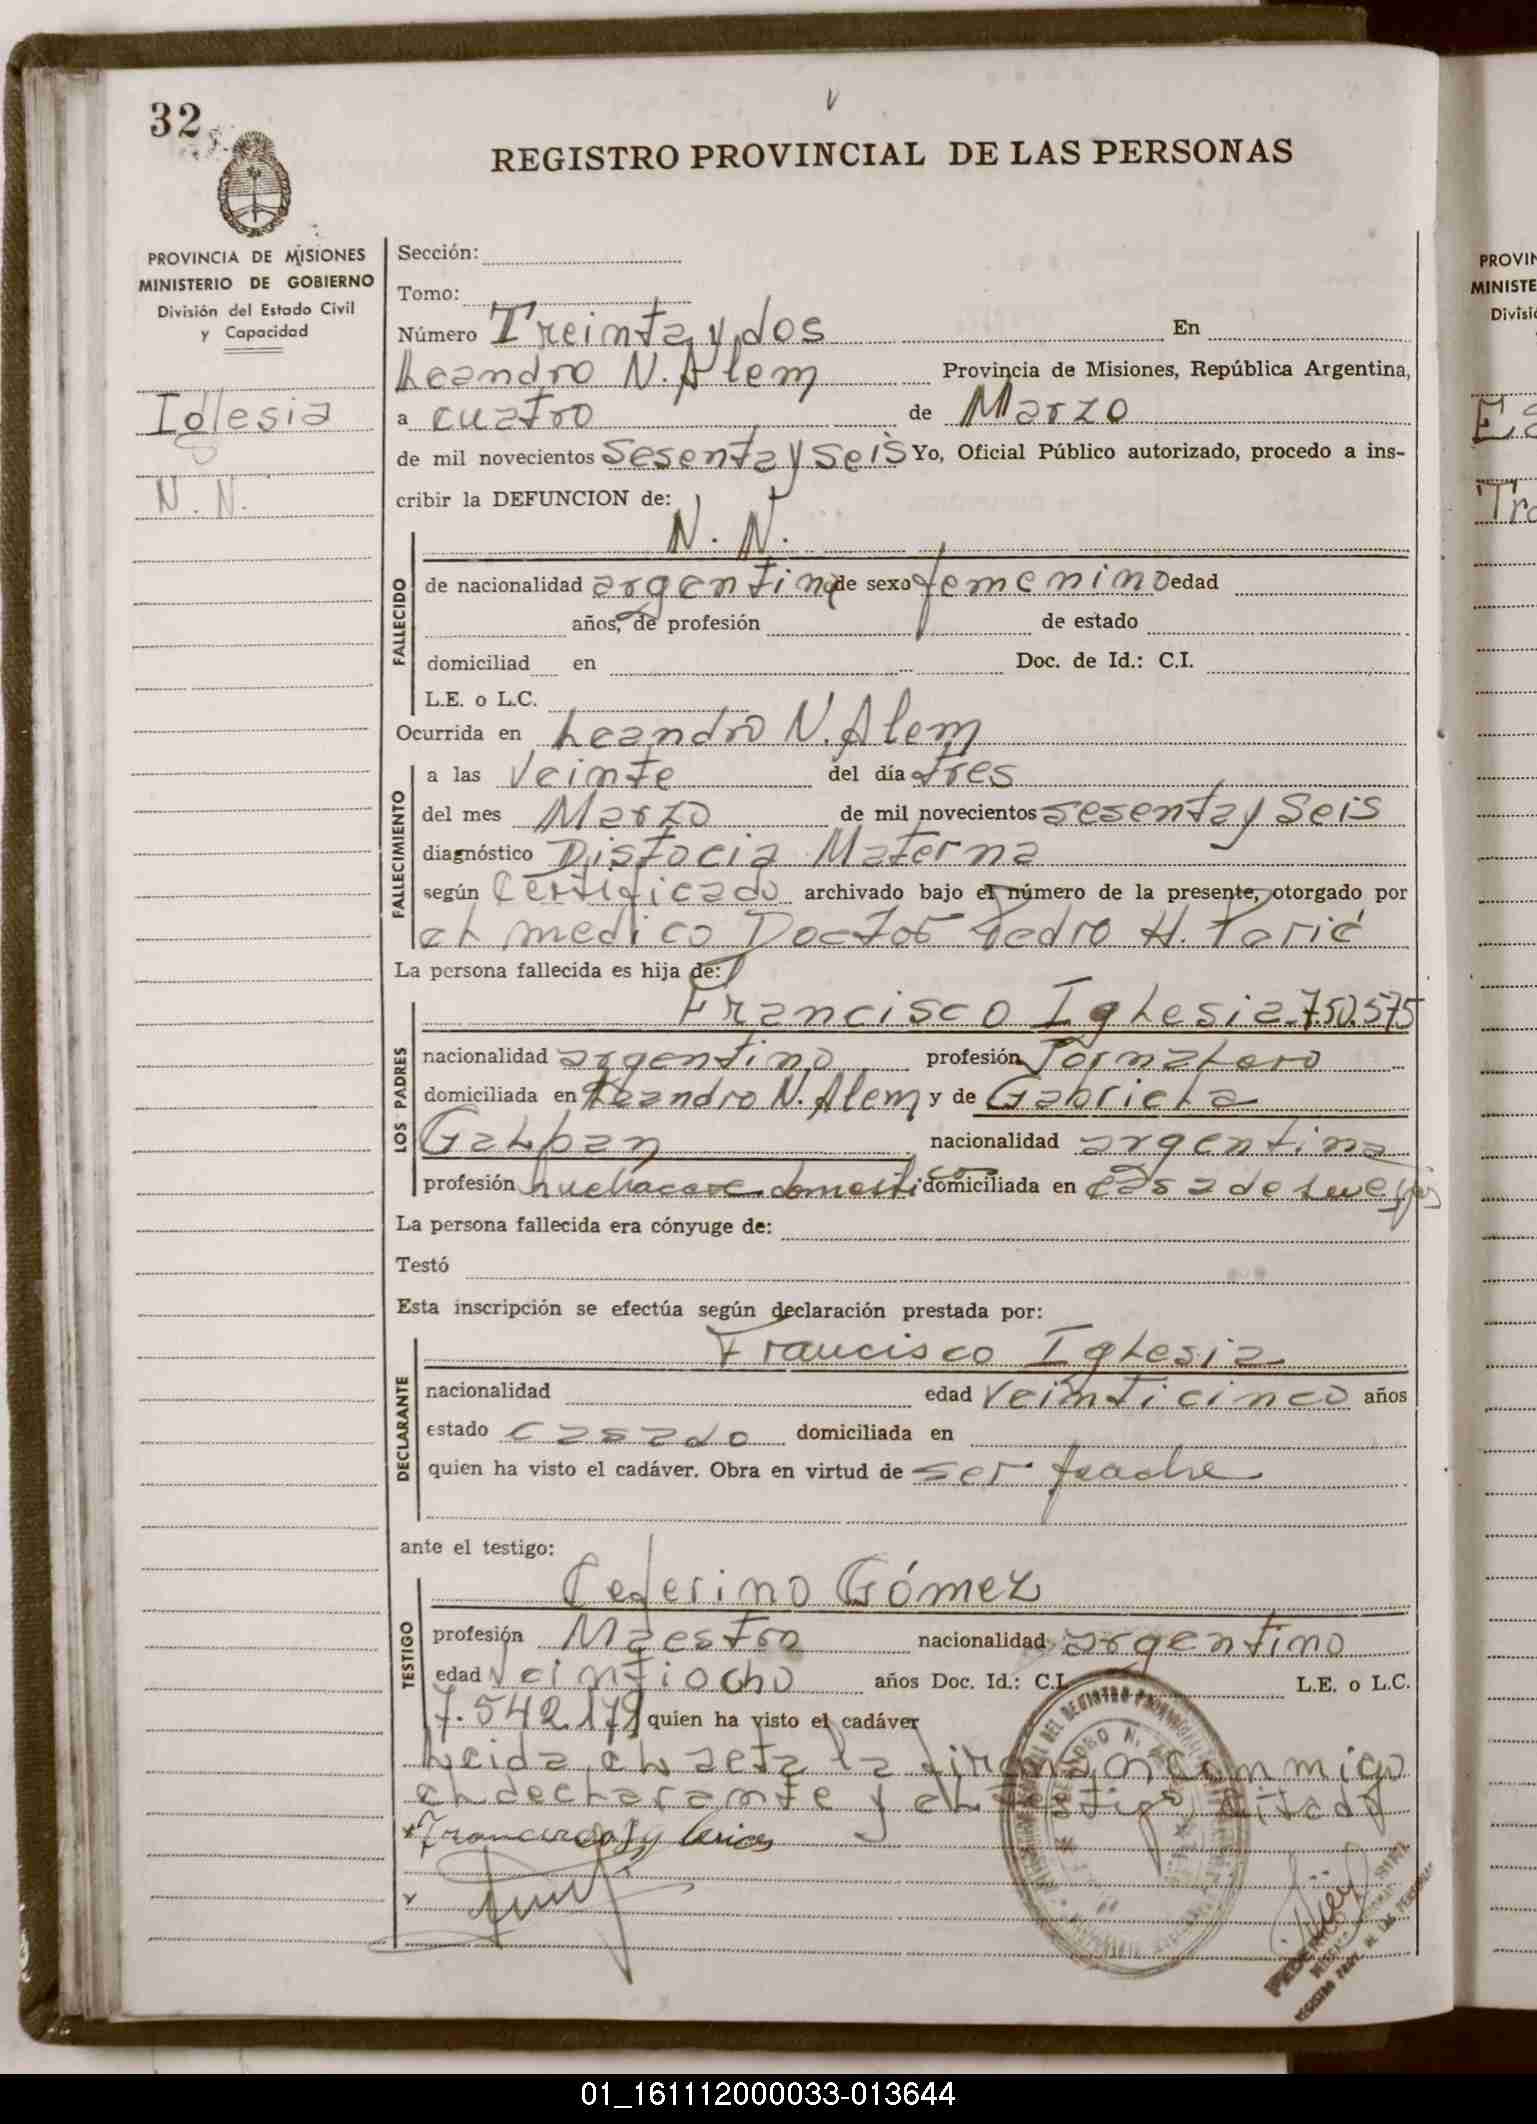 32
REGISTRO PROVINCIAL DE LAS PERSONAS
PROVINCIA DE MISIONES
MINISTERIO DE GOBIERNO
División del Estado Civil
y Capacidad
Iglesia
N. N.
Sección:
Tomo:
Número Treinta y dos En
Leandro N. Alem Provincia de Misiones, República Argentina,
a cuatro de Marzo
de mil novecientos sesenta y seis Yo, Oficial Público autorizado, procedo a ins-
cribir la DEFUNCION de:
N. N.
FALLECIDO
de nacionalidad argentina de sexo femenino edad
años, de profesión de estado
domiciliad en Doc. de Id.: C.I.
L.E. o L.C.
Ocurrida en Leandro N. Alem
FALLECIMIENTO
a las veinte del día tres
del mes Marzo de mil novecientos sesenta y seis
diagnóstico Distocia Materna
según Certificado archivado bajo el número de la presente, otorgado por
el medico Doctor Pedro H.
La persona fallecida es hija de:
LOS PADRES
Francisco Iglesia 750.575
nacionalidad argentino profesión Jornalero
domiciliada en Leandro N. Alem y de Gabriela
Galban nacionalidad argentina
profesión domiciliada en casa de
La persona fallecida era cónyuge de:
Testó
Esta inscripción se efectúa según declaración prestada por:
DECLARANTE
Francisco Iglesia
nacionalidad edad veinticinco años
estado casado domiciliada en
quien ha visto el cadáver. Obra en virtud de ser padre
ante el testigo:
TESTIGO
Ceferino Gómez
profesión Maestro nacionalidad argentino
edad veintiocho años Doc. Id.: C.I. L.E. o L.C.
7.542.179 quien ha visto el cadáver
Leida el acta la firman conmigo
el declarante y el testigo citado
PROVIN
MINISTE
Divisió
01_161112000033-013644